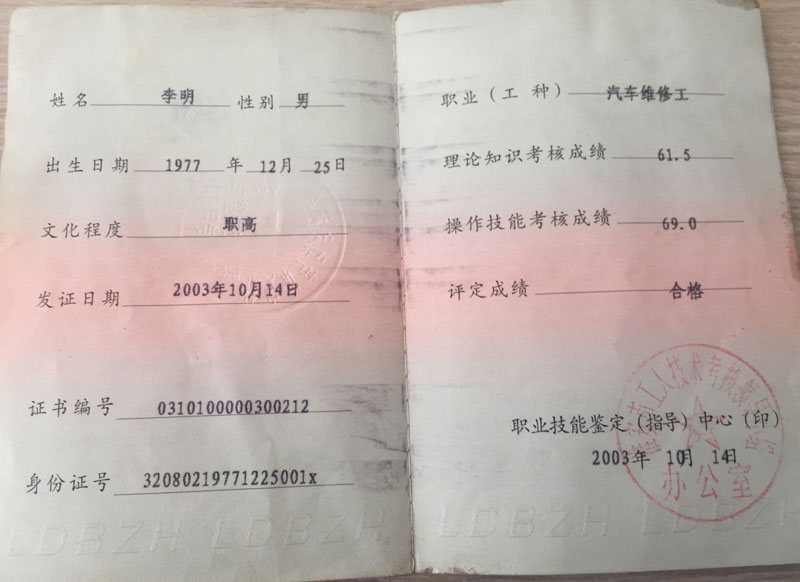 姓名 李明 性别 男
出生日期 1977 年 12月 25日
文化程度 职高
发证日期 2003年10月14日
证书编号 0310100000300212
身份证号 32080219771225001x
LDBZH LDBZH
职业（工 种） 汽车维修工
理论知识考核成绩 61.5
操作技能考核成绩 69.0
评定成绩 合格
职业技能鉴定（指导）中心（印）
2003年 10月 14日
工人技术考核
办公室
LDBZH LDBZH